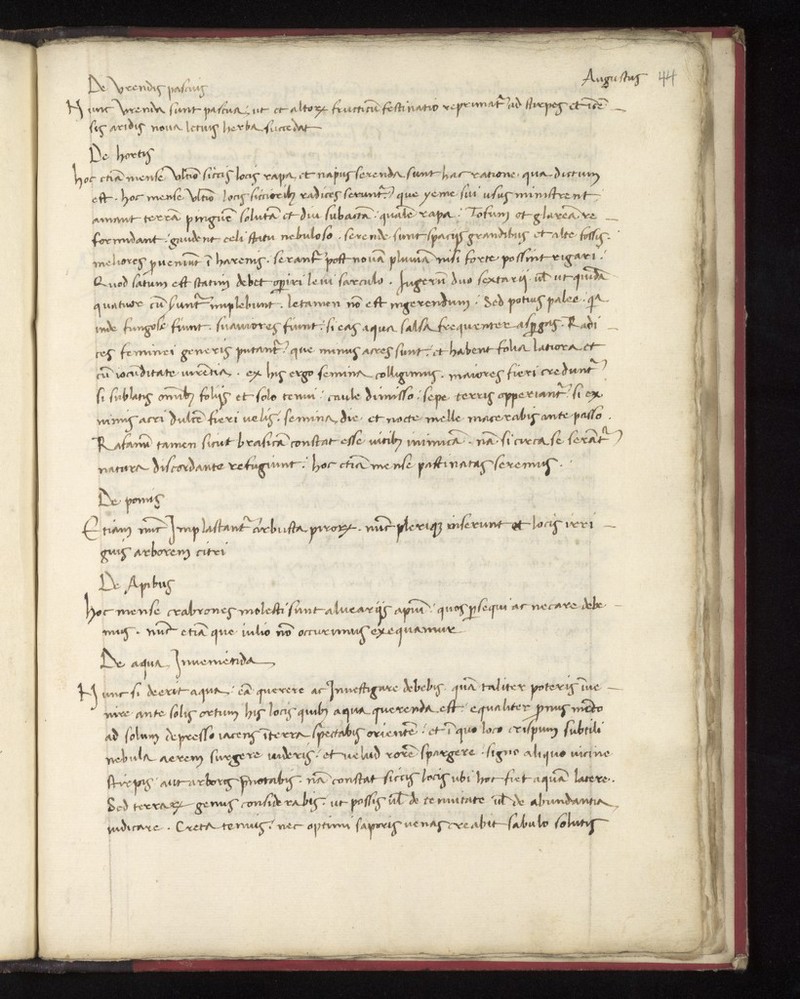 Augustus 44
De Vrendis pascuis
Nunc Vrenda sunt pascua, ut et altoꝝ fructicũ festinatio reprimat᷑ ad stirpes et ĩcẽ
sis aridis noua letius herba succedat
De hortis
hoc etiã mense Vltĩo siccis locis rapa, et napus serenda sunt hac ratione qua dictum
est. hoc mense Vltĩo locis siccioribꝫ radices serunt᷑ que yeme sui usus ministrent
amant terrã pinguẽ solutã et diu subactã quale rapa: Tofum et glareã re
formidant. gaudent celi statu nebuloso. serende sunt spacijs grandibus et alte fossis.
meliores ꝓueniunt ĩ harenis. serant᷑ post nouã pluuiã nisi forte possint rigari.
Quod satum est statim debet oꝑiri leui sarculo. Jugerũ duo sextarij uł ut quidã
quatuor cũ sunt᷑ implebunt. letamen nõ est ingerendum. Sed potius palee. q̃a
inde fungose fiunt. suauiores fiunt: si eas aqua salsa frequenter asꝑgas. Radi
ces feminei generis putant᷑ que minus acres sunt: et habent folia latiora et
cũ iocũditate uirẽtia. ex his ergo semina colligimus. maiores fieri credunt᷑
si sublatis omĩbꝫ folijs et solo tenui caule dimisso. sepe terris opperiant᷑. si ex
nimis acri dulcẽ fieri uelis. semina die et nocte melle macerabis ante passo.
Rafanũ tamen sicut brasicã constat esse uitibꝫ inimicã. nã si circa se serãt᷑
natura discordante refugiunt. hoc etiã mense pastinatas seremus.
De pomis
Etiam nũc Implastant᷑ arbusta piroꝝ. nũc pleriqꝫ inserunt et locis irri
guis arborem citri
De Apibus
hoc mense crabrones molesti sunt aluearijs apiũ. quos ꝑsequi ac necare debe
mus. nũc etiã que iulio nõ occurrimus exequamur
De aqua Inueniẽda
Nunc si deerit aqua: eã querere ac Inuestigare debebis. quã taliter poteris ĩue
nire ante solis ortum his locis quibꝫ aqua querenda est. equaliter pronus mẽto
ad solum depresso iacens ĩ terra spectabis orientẽ: et ĩ quo loco crispum subtili
nebula aerem surgere uideris. et uelud rorẽ spargere. signo aliquo uicine
stirpis aut arboris p̃notabis. nã constat siccis locis ubi hoc fiet aquã latere.
Sed terraꝝ genus considerabis. ut possis uł de tenuitate uł de abundantia
iudicare. Creta tenuis. nec optimi saporis uenas creabit sabulo solutis